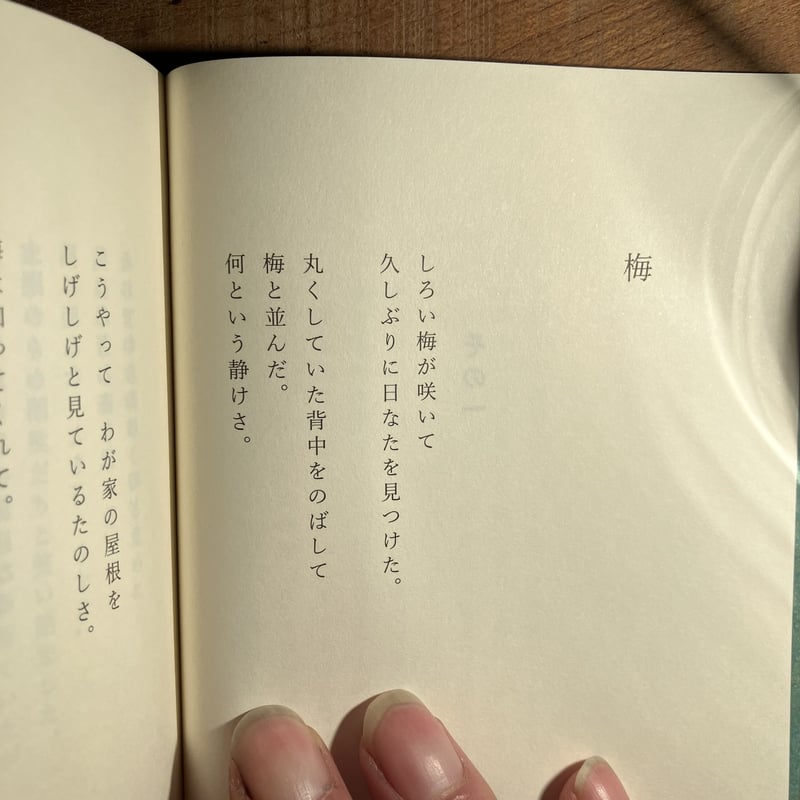 梅
しろい梅が咲いて
久しぶりに日なたを見つけた。
丸くしていた背中をのばして
梅と並んだ。
何という静けさ。
こうやって わが家の屋根を
しげしげと見ているたのしさ。